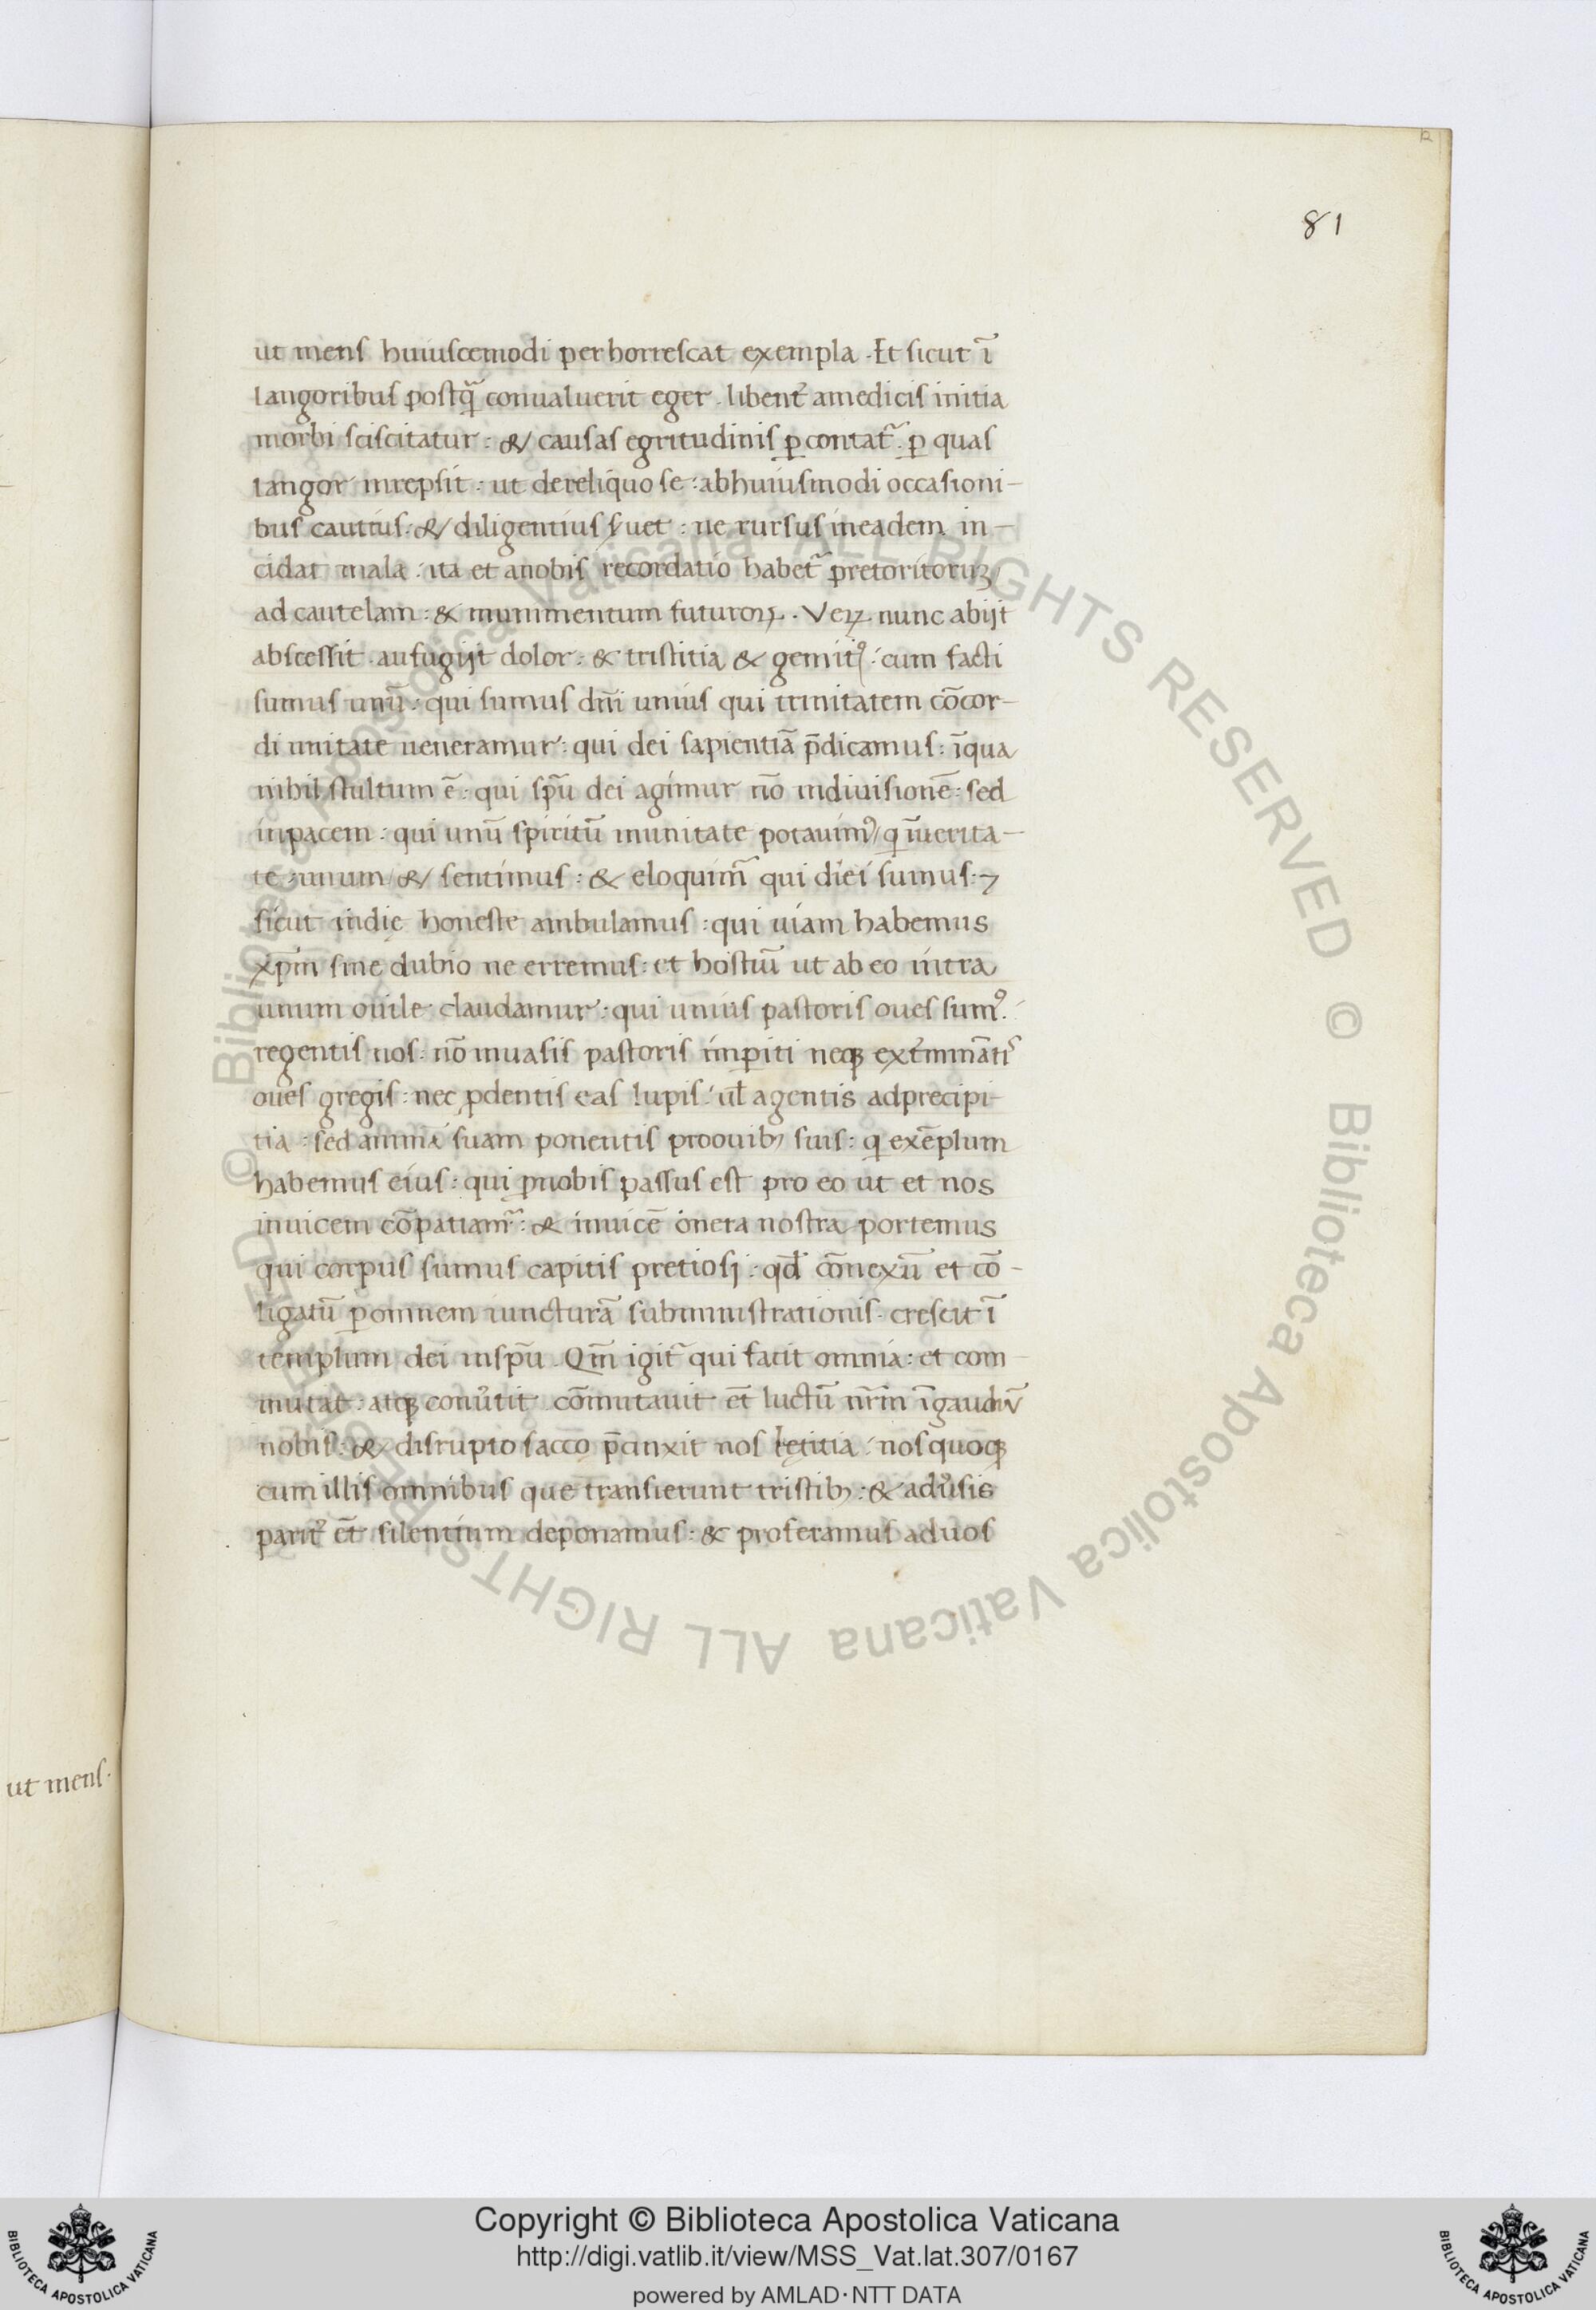 81
ut mens huiuscemodi perhorrescat exempla . Et sicut ī
langoribus postq̄ conualuerit eger . libent᷑ amedicis initia
morbi sciscitatur : & causas egritudinis ꝑcontat᷑ . ꝑ quas
langor inrepsit : ut dereliquo se : abhuiusmodi occasioni-
bus cautius : & diligentius ẜuet : ne rursus ineadem in-
cidat mala . ita et anobis recordatio habet᷑ pretoritoruꝫ /
ad cautelam : & munimentum futuroꝝ . Veꝝ nunc abijt
abscessit . aufugijt dolor : & tristitia & gemitꝰ : cum facti
sumus unū : qui sumus dn̄i unius qui trinitatem cōcor-
di unitate ueneramur : qui dei sapientiā p̄dicamus : īqua
nihil stultum ē : qui sp̄u dei agimur nō indiuisionē : sed
inpacem : qui unū spiritū inunitate potauimꝰ / q̄ īuerita-
te : unum / & sentimus : & eloquim᷑ qui diei sumus : ⁊
sicut indię honeste ambulamus : qui uiam habemus
xp̄m sine dubio ne erremus : et hostiū ut ab eo intra
unum ouile claudamur : qui unius pastoris oues sumꝰ :
regentis nos : nō inuasis pastoris imꝑiti neqꝫ ext᷑minātis
oues gregis : nec ꝑdentis eas lupis : ul̄ agentis adprecipi-
tia : sed animā suam ponentis proouibꝫ suis : q̄ exēplum
habemus eius : qui ꝓnobis passus est pro eo ut et nos
inuicem cōpatiam᷑ : & inuicē onera nostra portemus
qui corpus sumus capitis pretiosi : qd̄ cōnexū et cō-
ligatū ꝑomnem iuncturā subministrationis . crescit ī
templum dei insp̄u . Qm̄ igit᷑ qui facit omnia : et com
mutat : atqꝫ conu᷑tit . cōmutauit et̄ luctū nr̄m īgaudiū
nobis : & disrupto sacco p̄cinxit nos lętitia : nos quoqꝫ
cum illis omnibus que transierunt tristibꝫ : & adu᷑sis
parit᷑ et̄ silentium deponamus : & proferamus aduos
ut mens .
Copyright © Biblioteca Apostolica Vaticana
http://digi.vatlib.it/view/MSS_Vat.lat.307/0167
powered by AMLAD·NTT DATA
BIBLIOTECA APOSTOLICA VATICANA
BIBLIOTECA APOSTOLICA VATICANA
© Biblioteca Apostolica Vaticana ALL RIGHTS RESERVED © Biblioteca Apostolica Vaticana ALL RIGHTS RESERVED